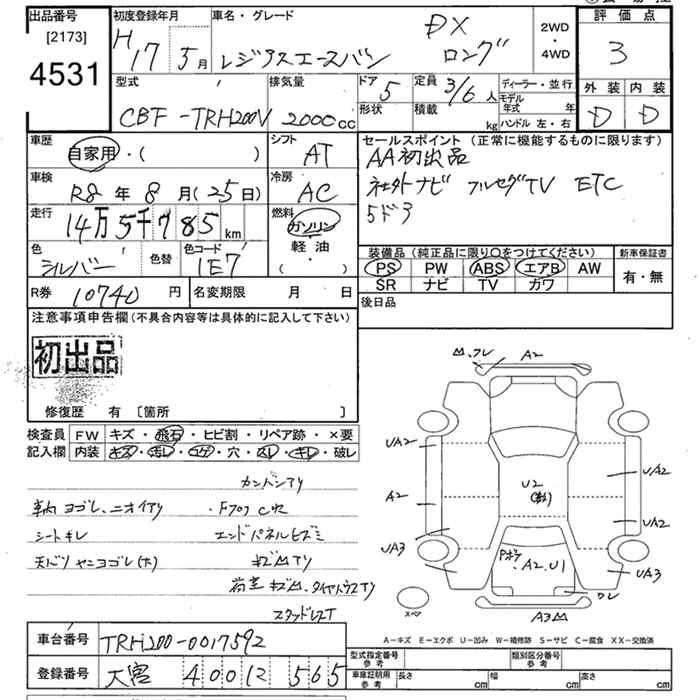 出品番号
[2173]
4531
初度登録年月
H17 5月
車名・グレード
レジアスエースバン
DX
ロング
2WD
・
4WD
評価点
3
外装 内装
D D
型式
CBF-TRH200V
排気量
2000cc
ドア
5
形状
定員
3/6人
積載
kg
ディーラー・並行
モデル年式 年
ハンドル 左・右
車歴
自家用・( )
シフト
AT
車検
R8年8月(25日)
冷房
AC
走行
14万5千785km
燃料
ガソリン
軽・油
・( )
色
シルバー
色替
色コード
1E7
セールスポイント (正常に機能するものに限ります)
AA初出品
社外ナビ フルセグTV ETC
5ドア
装備品 (純正品に限り○をつけてください)
PS PW ABS エアB AW
SR ナビ TV カワ
新車保証書
有・無
後日品
R券 10740円
名変期限 月 日
注意事項申告欄(不具合内容等は具体的に記入して下さい)
初出品
修復歴 有 [箇所 ]
検査員記入欄
FW キズ・飛石・ヒビ割・リペア跡・×要
内装 キズ・汚レ・コゲ・穴・スレ・キレ・破レ
カンバンアリ
車内ヨゴレ、ニオイアリ
・Fフロアサビ
シートキレ
エンドパネルヒズミ
天バリヤニヨゴレ(大)
荷室
スタッドレスT
フレ A2
UA2
A2
UA3
U2
UA2
UA2
UA3
A2.U1
A3
スペア
A-キズ E-エクボ U-凹み W-補修跡 S-サビ C-腐食 XX-交換済
車台番号 TRH200-0017592
登録番号 大宮 400 に 565
型式指定番号 参考
類別区分番号 参考
車庫証明用 参考
長さ cm
幅 cm
高さ cm